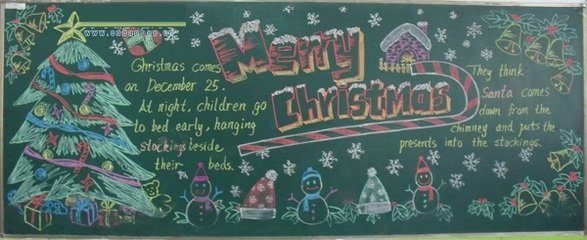 Merry
Christmas
Christmas comes
on December 25.
At night, children go
to bed early, hanging
stockings beside
their beds.
They think
Santa comes
down from the
chimney and puts the
presents into the stockings.